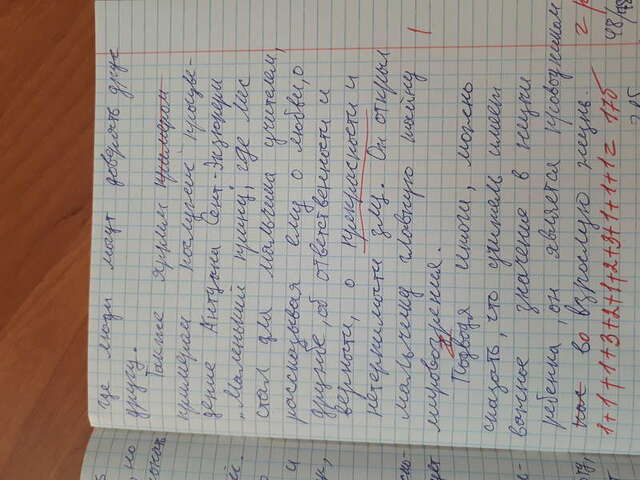 где люди могут доверять друг
другу.
Также ярким примером
примером послужит произве-
дение Антуана Сент-Экзюпери
„Маленький принц", где Лис
стал для мальчика учителем,
рассказывая ему о любви, о
дружбе, об ответственности и
верности, о прекрасности и
нетерпимости злу. Он открыл
мальчику главную тайну
мировозрения.
Подводя итоги, можно
сказать, что учитель имеет
важное значение в жизни
ребенка, он является проводником
во взрослую жизнь.
1+1+1+3+2+1+2+3+1+1+1= 17б
48/48
но
и